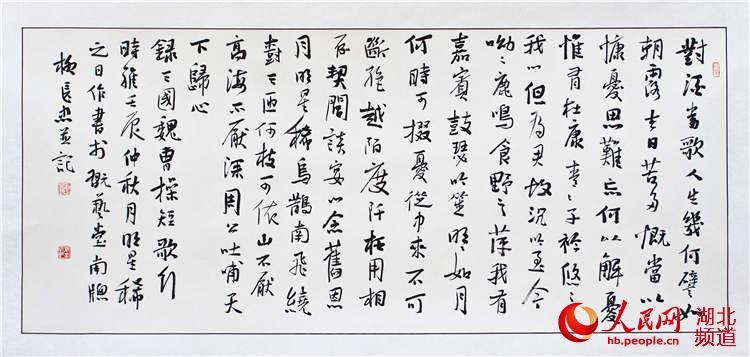 對酒當歌人生幾何譬如
朝露去日苦多慨當以
慷憂思難忘何以解憂
惟有杜康青々子衿悠々
我心但為君故沉吟至今
呦々鹿鳴食野之苹我有
嘉賓鼓瑟吹笙明々如月
何時可掇憂從中來不可
斷絕越陌度阡枉用相
存契闊談宴心念舊恩
月明星稀烏鵲南飛繞
對三匝何枝可依山不厭
高海不厭深周公吐哺天
下歸心
錄三國魏曹操短歌行
時維壬辰仲秋月明星稀
之日作書於翫藝堂南牕
并記
人民网 湖北频道
hb.people.cn